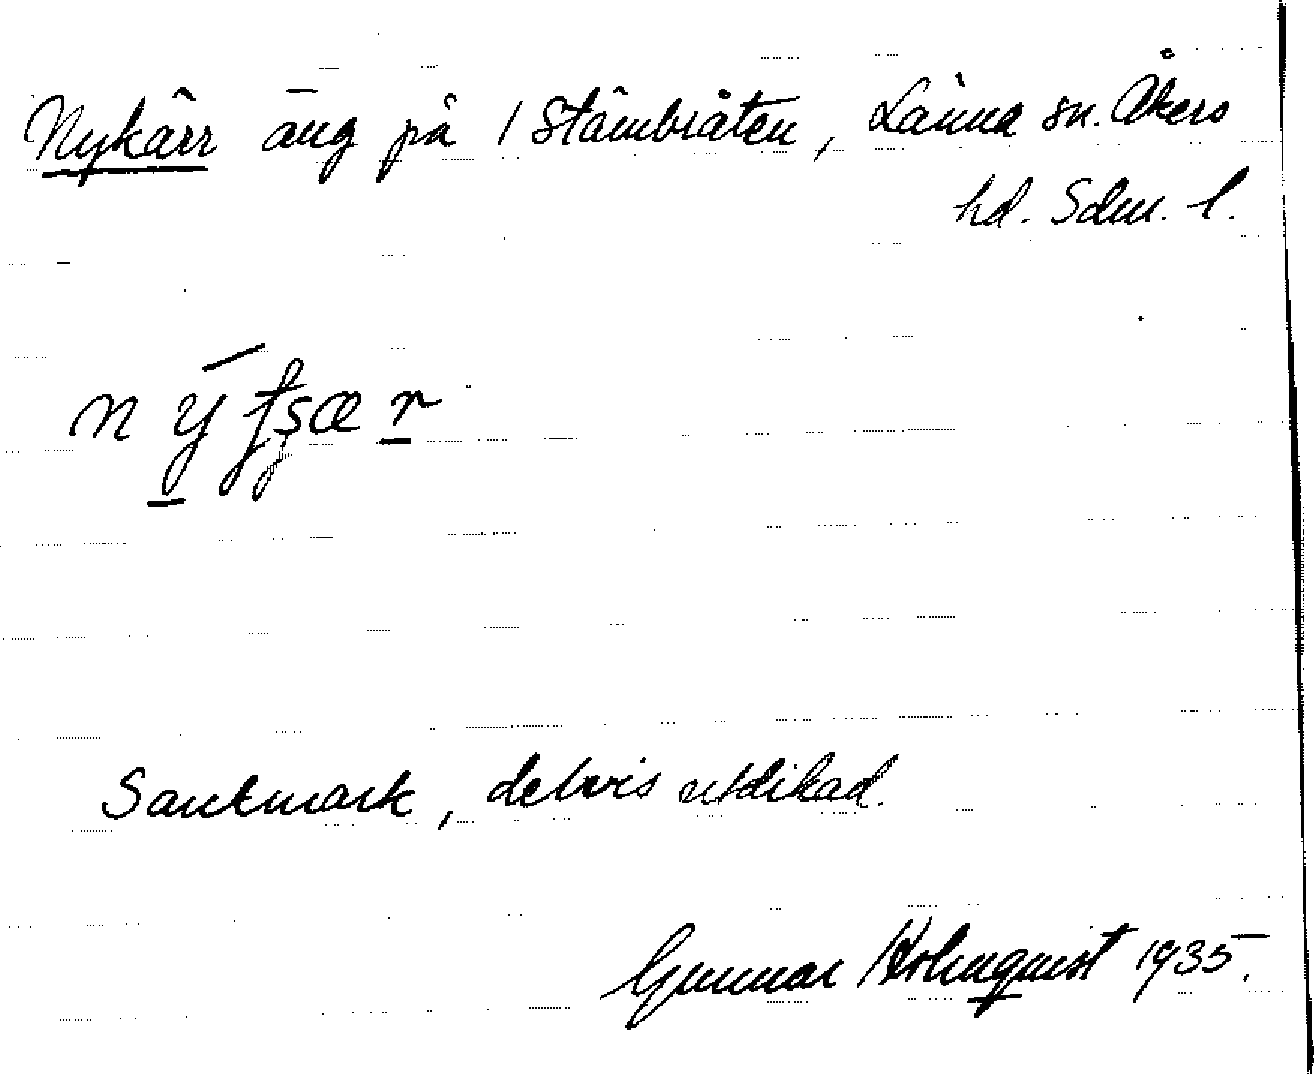 Nykärr äng på 1 Stämbråten, Länna sn. Åkers
hd. Sdm. l.
Sankmark, delvis utdikad.
Gunnar Holmquist 1935.